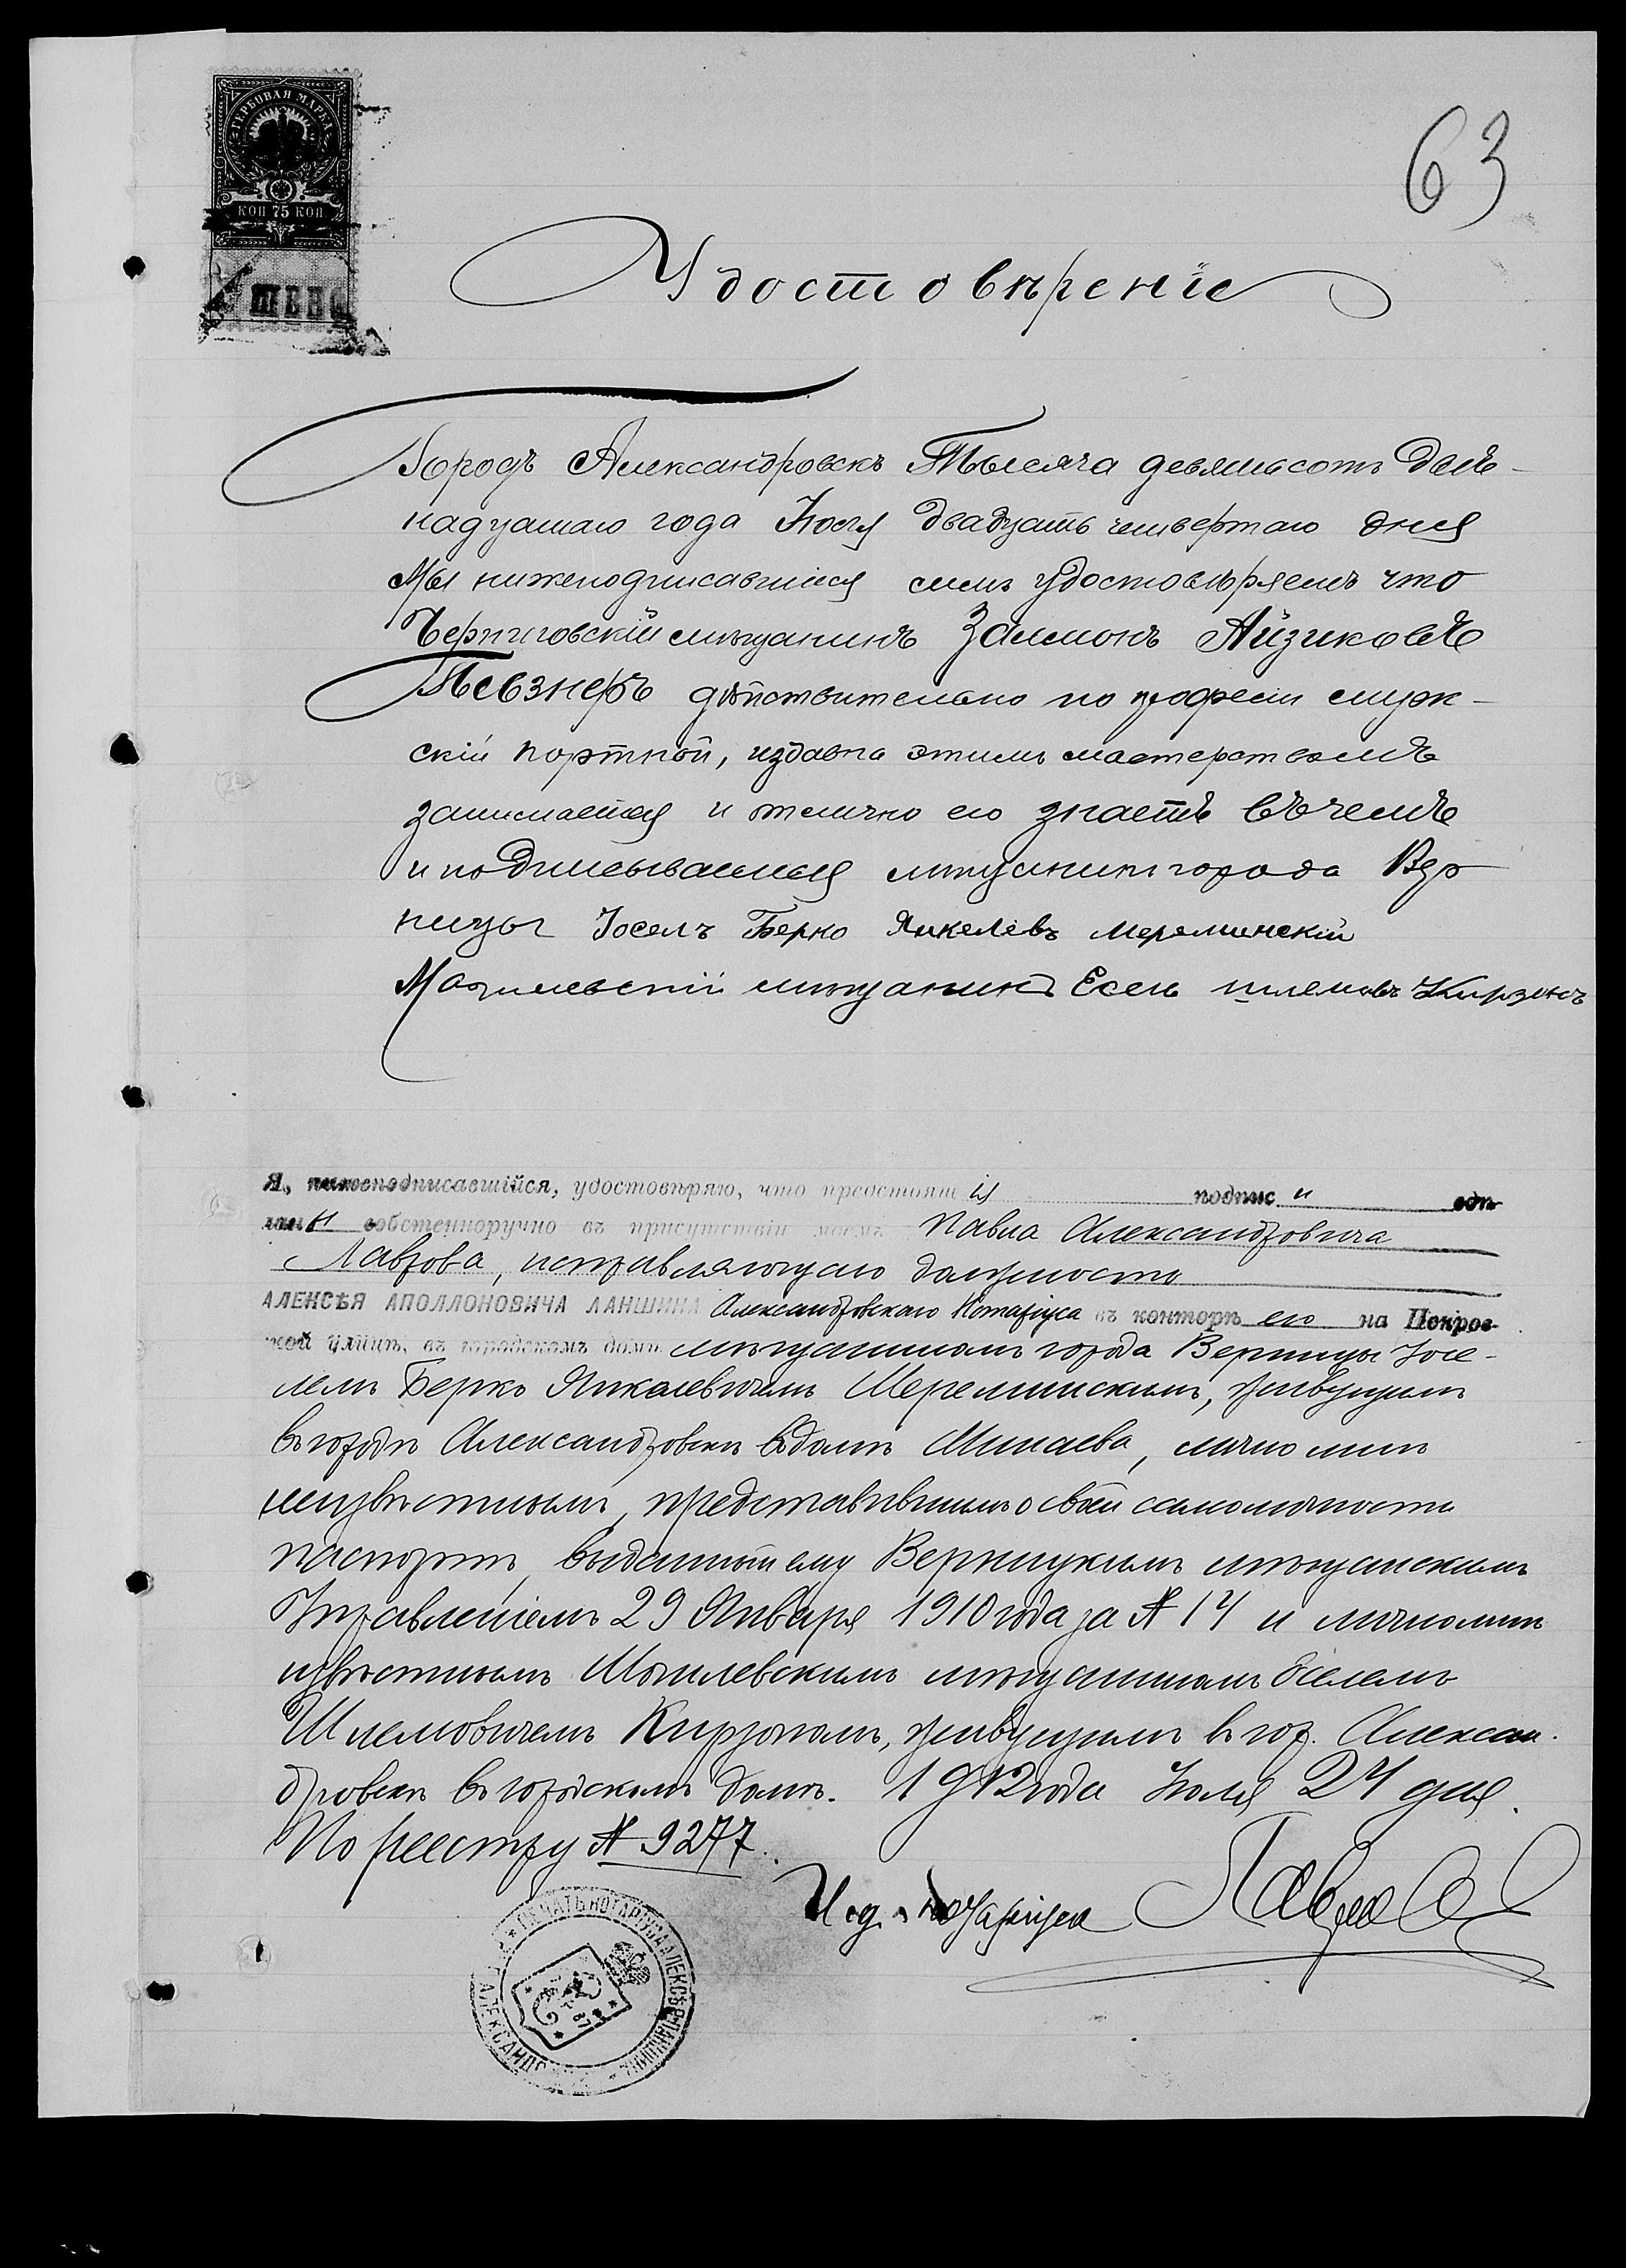 ГЕРБОВАЯ МАРКА
КОП 75 КОП.
ШЕНО
63
Удостовѣреніе
Городъ Александровскъ Тысяча девятьсотъ двѣ-
надцатаго года Іюля двадцать четвертаго дня
Мы нижеподписавшіися симъ удостовѣряемъ что
Черниговскій мѣщанинъ Залмонъ Айзиковъ
Певзнеръ дѣйствительно по профессіи мужс-
скій портной, издавна этимъ мастерствомъ
занимается и отлично его знаетъ въ чемъ
и подписываемся мѣщанинъ города Вер
ницы Іосель Берко Янкелевъ Мереминскій
Могилевскій мѣщанинъ Есель Шлемовъ Кирзонъ
Я, нижеподписавшійся, удостовѣряю, что предстоящія подписи сдѣ-
ланы собственноручно въ присутствіи моемъ Павла Александровича
Лаврова, исправляющаго должность
АЛЕКСѢЯ АПОЛЛОНОВИЧА ЛАНШИНА Александровскаго Нотаріуса въ конторѣ его на Покров-
ской улицѣ, въ городскомъ домѣ мѣщаниномъ города Верницы Іосе-
лемъ Берко Янкелевичемъ Мереминскимъ, живущимъ
въ городѣ Александровскѣ въ домѣ Минаева, лично мнѣ
неизвѣстнымъ, представившимъ о своей самоличности
паспортъ, выданный ему Верницкимъ мѣщанскимъ
Управленіемъ 29 Января 1910 года за № 14 и лично мнѣ
извѣстнымъ Могилевскимъ мѣщаниномъ Еселемъ
Шлемовичемъ Кирзономъ, живущимъ въ гор. Алексан-
дровскѣ въ городскомъ домѣ. 1912 года Іюля 24 дня.
По реестру № 9277.
И. д. Нотаріуса Лавровъ
ПЕЧАТЬ НОТАРІУСА АЛЕКСѢЯ ЛАНШИНА